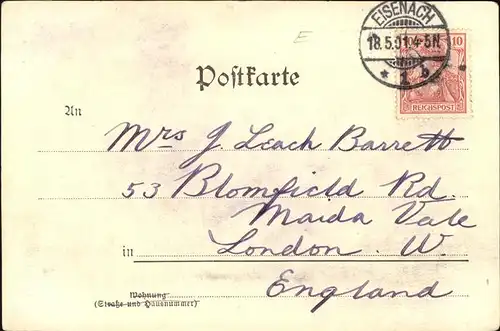 EISENACH
18.5.01.4-5N
* 1 b
10
REICHSPOST
E
Postkarte
An
Mrs J. Leach Barrett
53 Blomfield Rd.
Maida Vale
in London. W.
England
Wohnung
(Straße und Hausnummer)